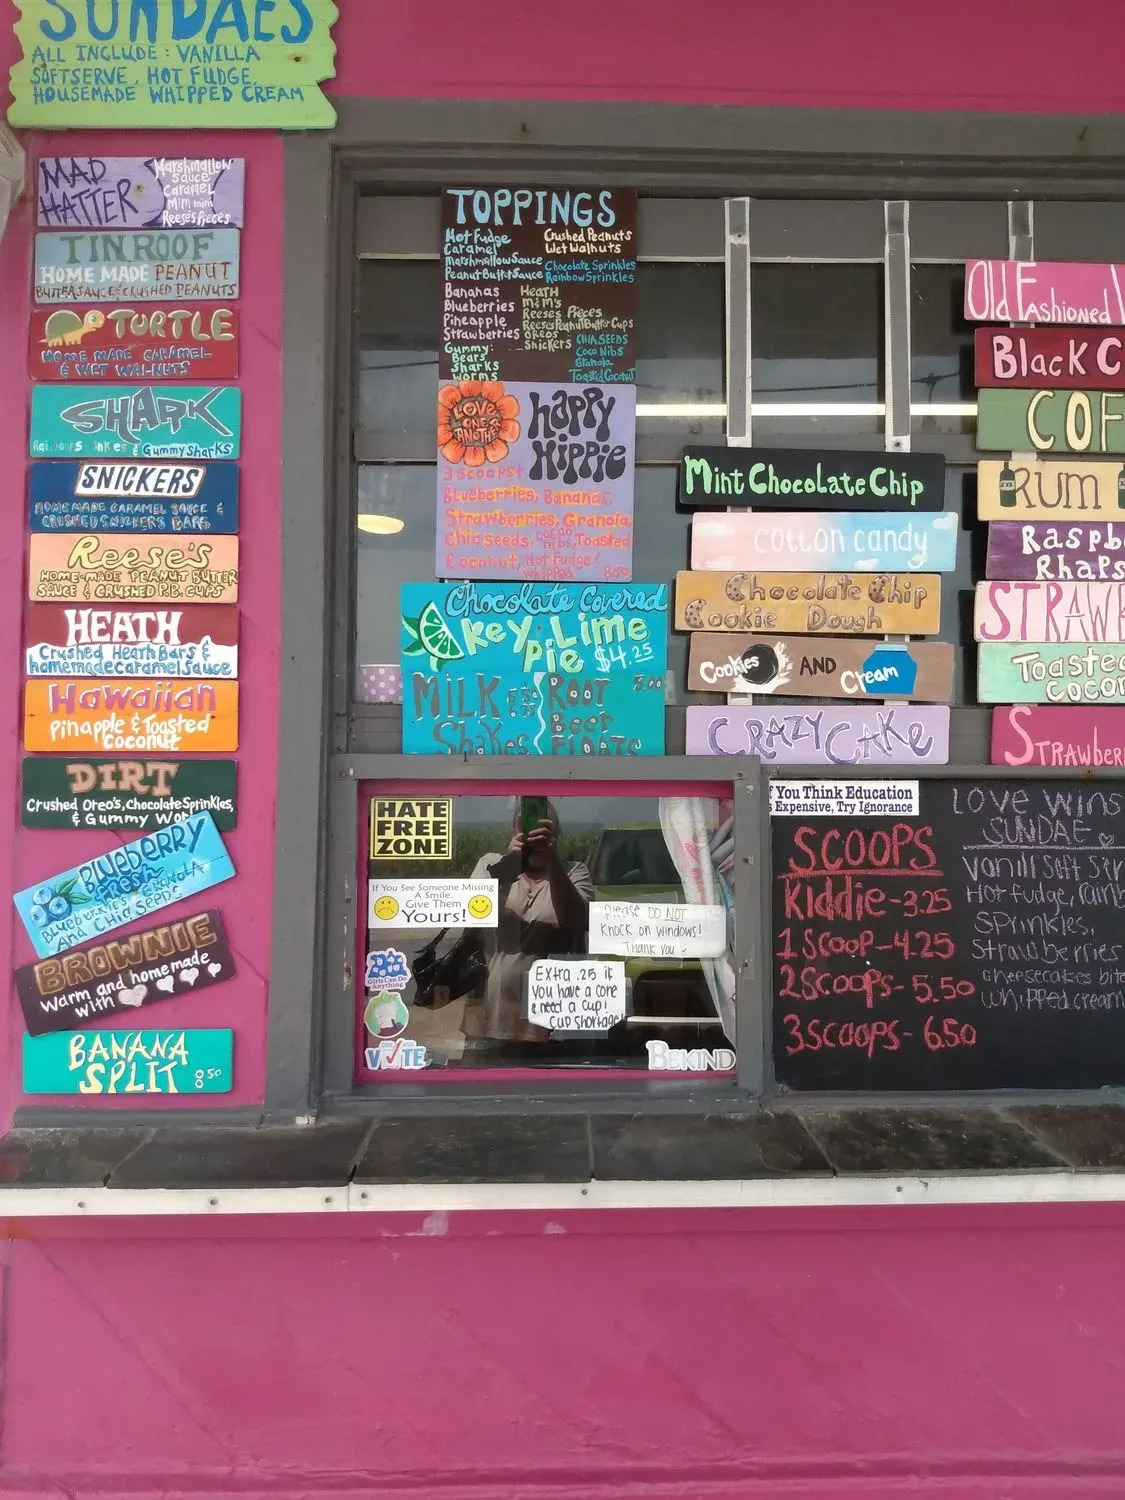 SUNDAES
ALL INCLUDE: VANILLA
SOFTSERVE, HOT FUDGE,
HOUSEMADE WHIPPED CREAM
MAD
HATTER
Marshmallow
sauce
Caramel
M&M mini
Reese's Pieces
TIN ROOF
HOME MADE PEANUT
BUTTER SAUCE & CRUSHED PEANUTS
TURTLE
HOME MADE CARAMEL
& WET WALNUTS
SHARK
& Gummy Sharks
SNICKERS
HOMEMADE CARAMEL SAUCE &
CRUSHED SNICKERS BARS
Reese's
HOME-MADE PEANUT BUTTER
SAUCE & CRUSHED P.B. CUPS
HEATH
Crushed Heath Bars &
homemade caramel sauce
Hawaiian
Pinapple & Toasted
Coconut
DIRT
Crushed Oreo's, Chocolate Sprinkles,
& Gummy Wor
BLUEBERRY
Fresh
Blueberries GRANOLA
And Chia Seeds
BROWNIE
Warm and homemade
with
BANANA
SPLIT 850
TOPPINGS
Hot Fudge
Caramel
Marshmallow Sauce
Peanut Butter Sauce
Bananas
Blueberries
Pineapple
Strawberries
Gummy:
Bears
Sharks
Worms
Crushed Peanuts
Wet Walnuts
Chocolate Sprinkles
Rainbow Sprinkles
HEATH
M&M's
Reeses Pieces
Reeses Peanut Butter Cups
OREOS
Snickers
CHIA SEEDS
Coco Nibs
Granola
Toasted Coconut
LOVE
ONE
ANOTHER
Happy
Hippie
3 scoops
Blueberries, Bananas,
Strawberries, Granola,
Chia Seeds, cacao nibs, Toasted
Coconut, Hot Fudge &
whipped 8.50
Chocolate Covered
Key Lime
Pie $4.25
MILK
Shakes
ROOT
Beer
FLOATS
8.00
Mint Chocolate Chip
cotton candy
Chocolate Chip
Cookie Dough
Cookies AND Cream
CRAZY CAKE
Old Fashioned V
Black C
COF
RUM
Raspb
Rhaps
STRAW
Toaste
Cocon
Strawber
HATE
FREE
ZONE
If You See Someone Missing
A Smile,
Give Them
Yours!
Please DO NOT
knock on windows!
Thank you
Extra .25 if
you have a cone
& need a cup!
Cup shortage!
Girls Can Do
Anything
COOL KIDS
VOTE
BE KIND
f You Think Education
s Expensive, Try Ignorance
SCOOPS
Kiddie-3.25
1 Scoop-4.25
2 Scoops-5.50
3 Scoops-6.50
LOVE WINS
SUNDAE
Vanill Soft Ser
Hot fudge, rain
Sprinkles,
Strawberries
cheesecakes bite
Whipped cream